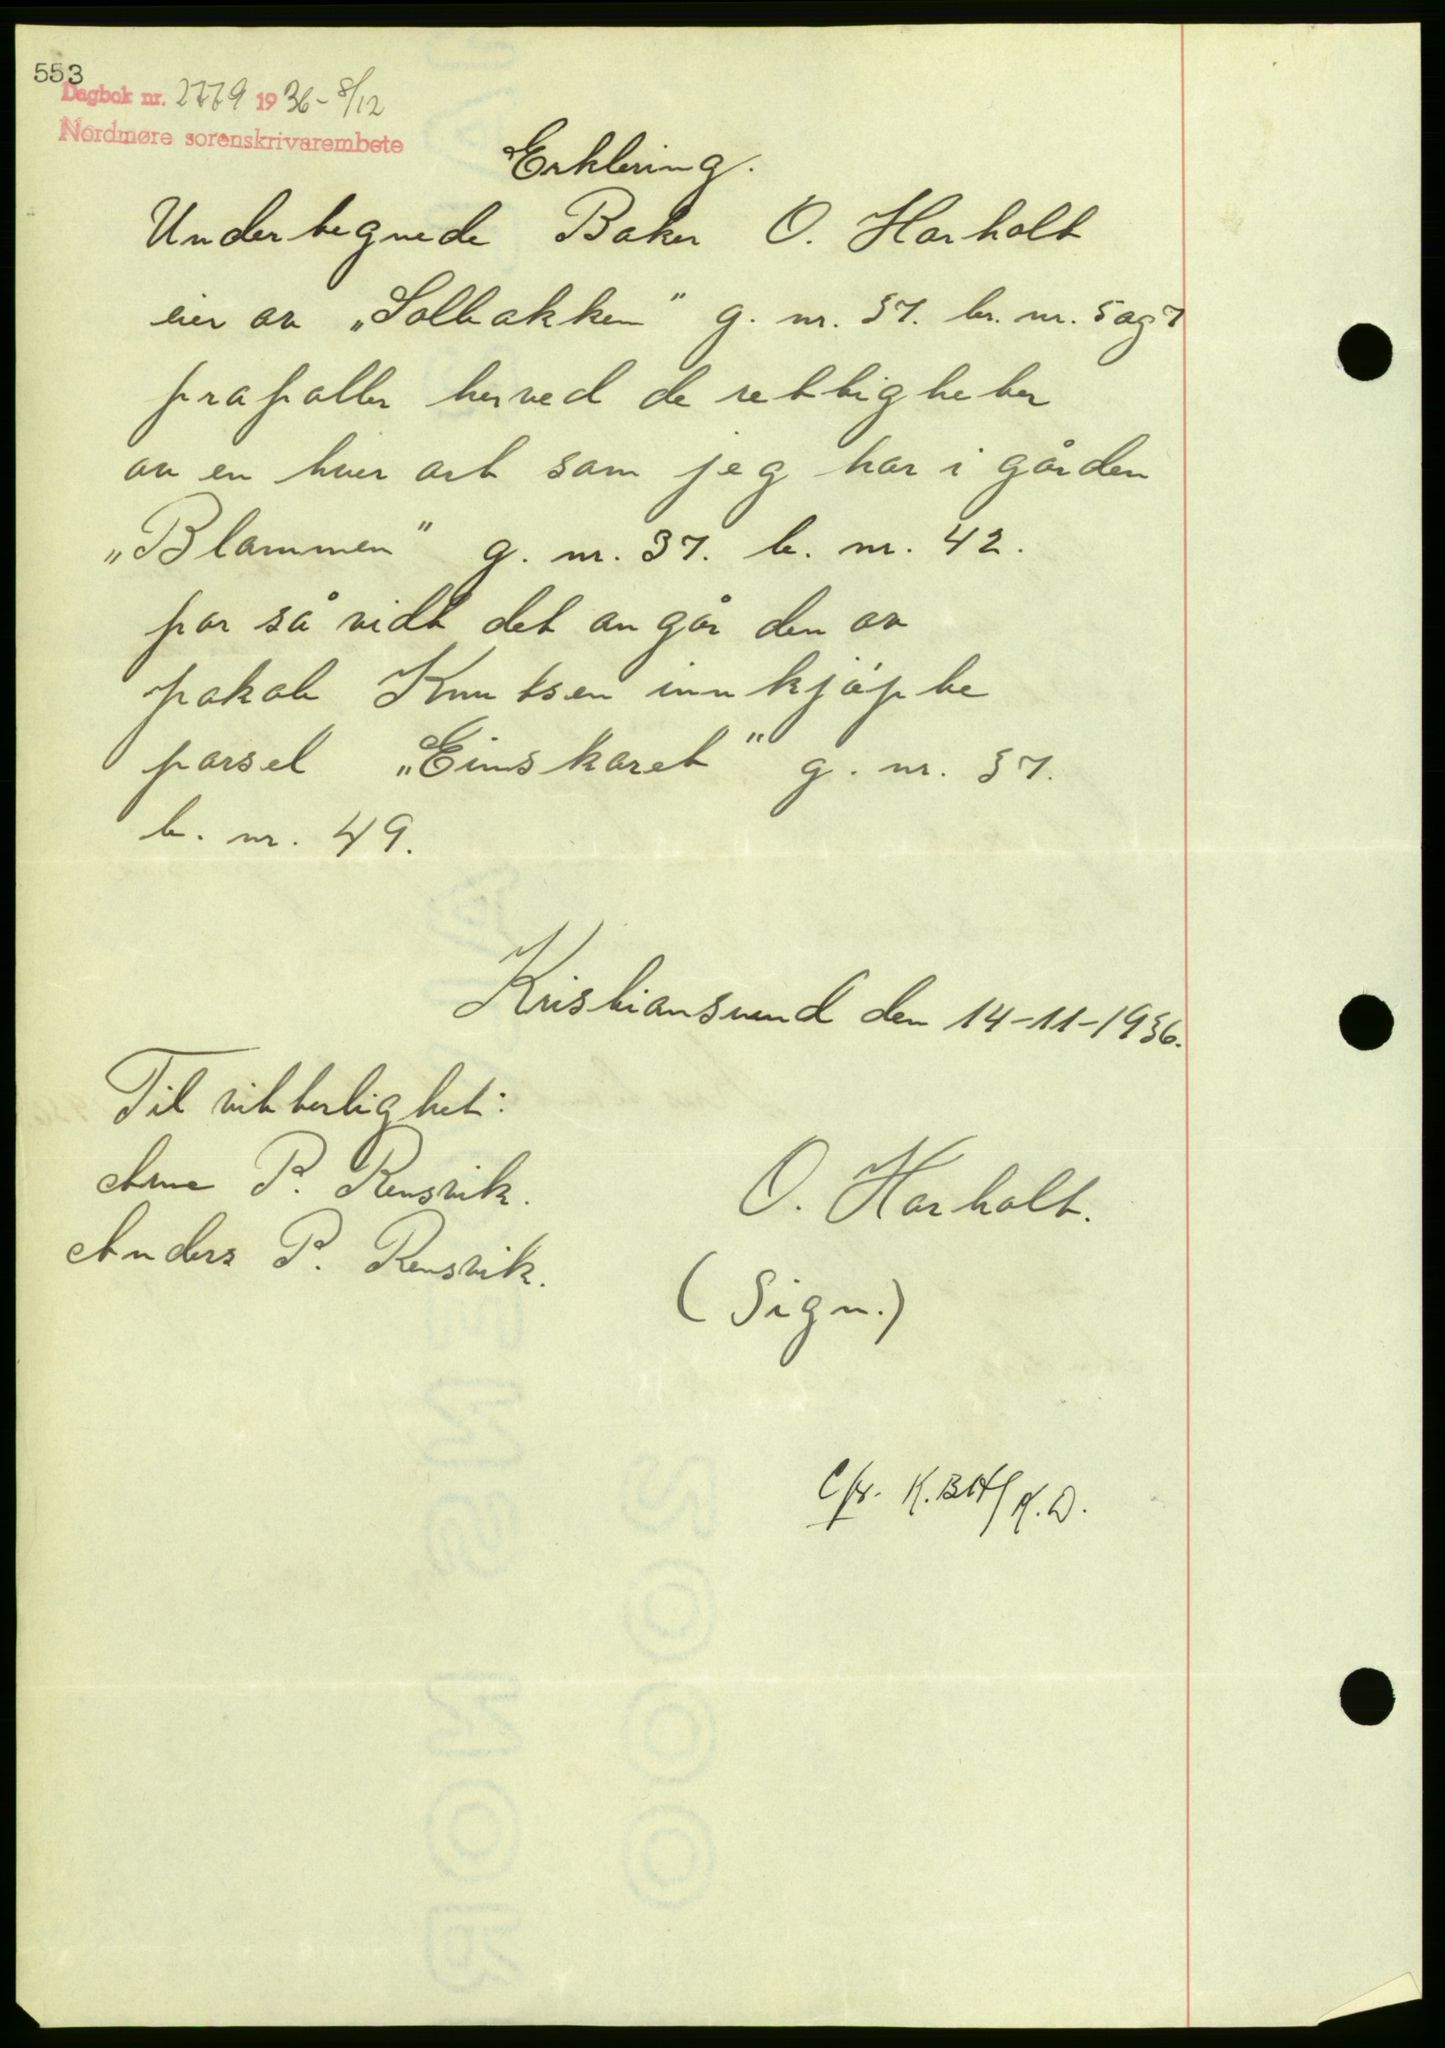 553
Dagbok nr. 2779 1936 - 8/12
Nordmøre sorenskrivarembete
Erklering.
Undertegnede Baker O. Harholt
eier av „Solbakken" g. nr. 37. br. nr. 5 og 7
frafaller herved de rettigheter
av en hver art som jeg har i gården
„Blommen" g. nr. 37. b. nr. 42.
for så vidt det angår den av
Knutsen innkjøpte
parsel „Einskaret" g. nr. 37.
b. nr. 49.
Kristiansund den 14-11-1936.
Til vitterlighet:
Arne P. Rensvik.
Anders P. Rensvik.
O. Harholt.
(Sign.)